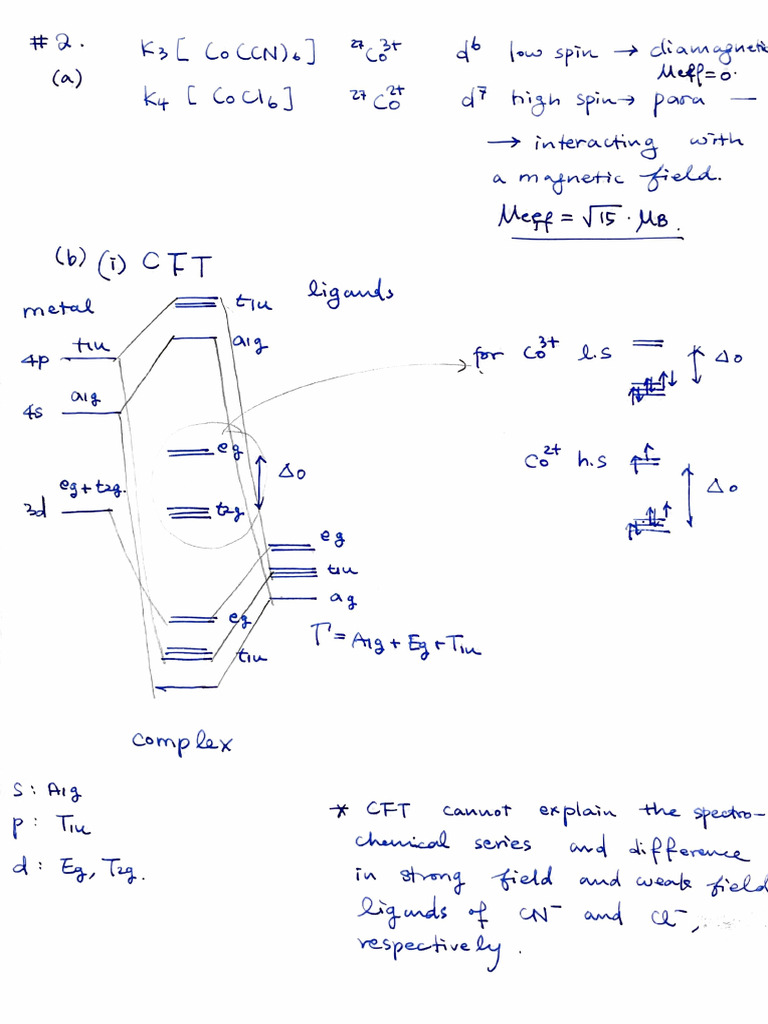 #2.
(a)
K3 [ Co(CN)6 ] 27Co3+ d6 low spin → diamagnetic
Meff = 0.
K4 [ CoCl6 ] 27Co2+ d7 high spin → para —
→ interacting with
a magnetic field.
μeff = √15 · μB.
(b) (i) CFT
metal
ligands
t1u
t1u
4p
a1g
a1g
4s
for Co3+ l.s
Δo
eg
Δo
Co2+ h.s
Δo
eg + t2g.
3d
t2g
eg
t1u
ag
eg
t1u
Γ = A1g + Eg + T1u
complex
s : A1g
p : T1u
d : Eg, T2g.
* CFT cannot explain the spectro-
chemical series and difference
in strong field and weak field
ligands of CN⁻ and Cl⁻,
respectively.